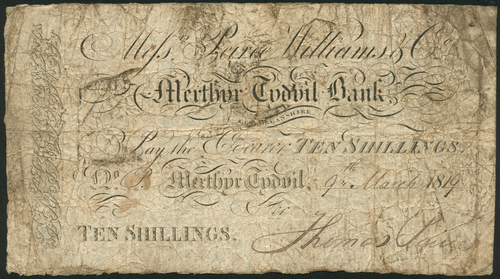 Mess. Peirce Williams & Co.
Merthyr Tydvil Bank
GLAMORGANSHIRE
Pay the Bearer TEN SHILLINGS
No. Merthyr Tydvil, 9th March 1819
For
TEN SHILLINGS. Thomas